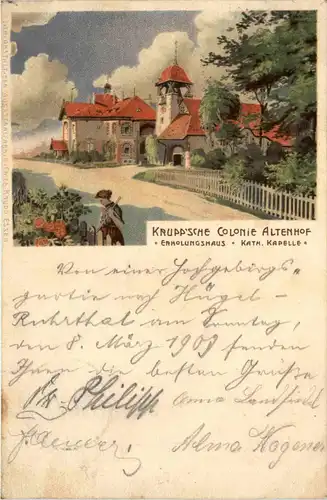 KRUPP'SCHE COLONIE ALTENHOF
• ERHOLUNGSHAUS • KATH. KAPELLE •
Von einer Hochgebirgs=
partie nach Hügel-
Ruhrthal am Sonntag,
den 8. März 1903 senden
Ihnen die besten Grüße
Philipp Anna
Alma